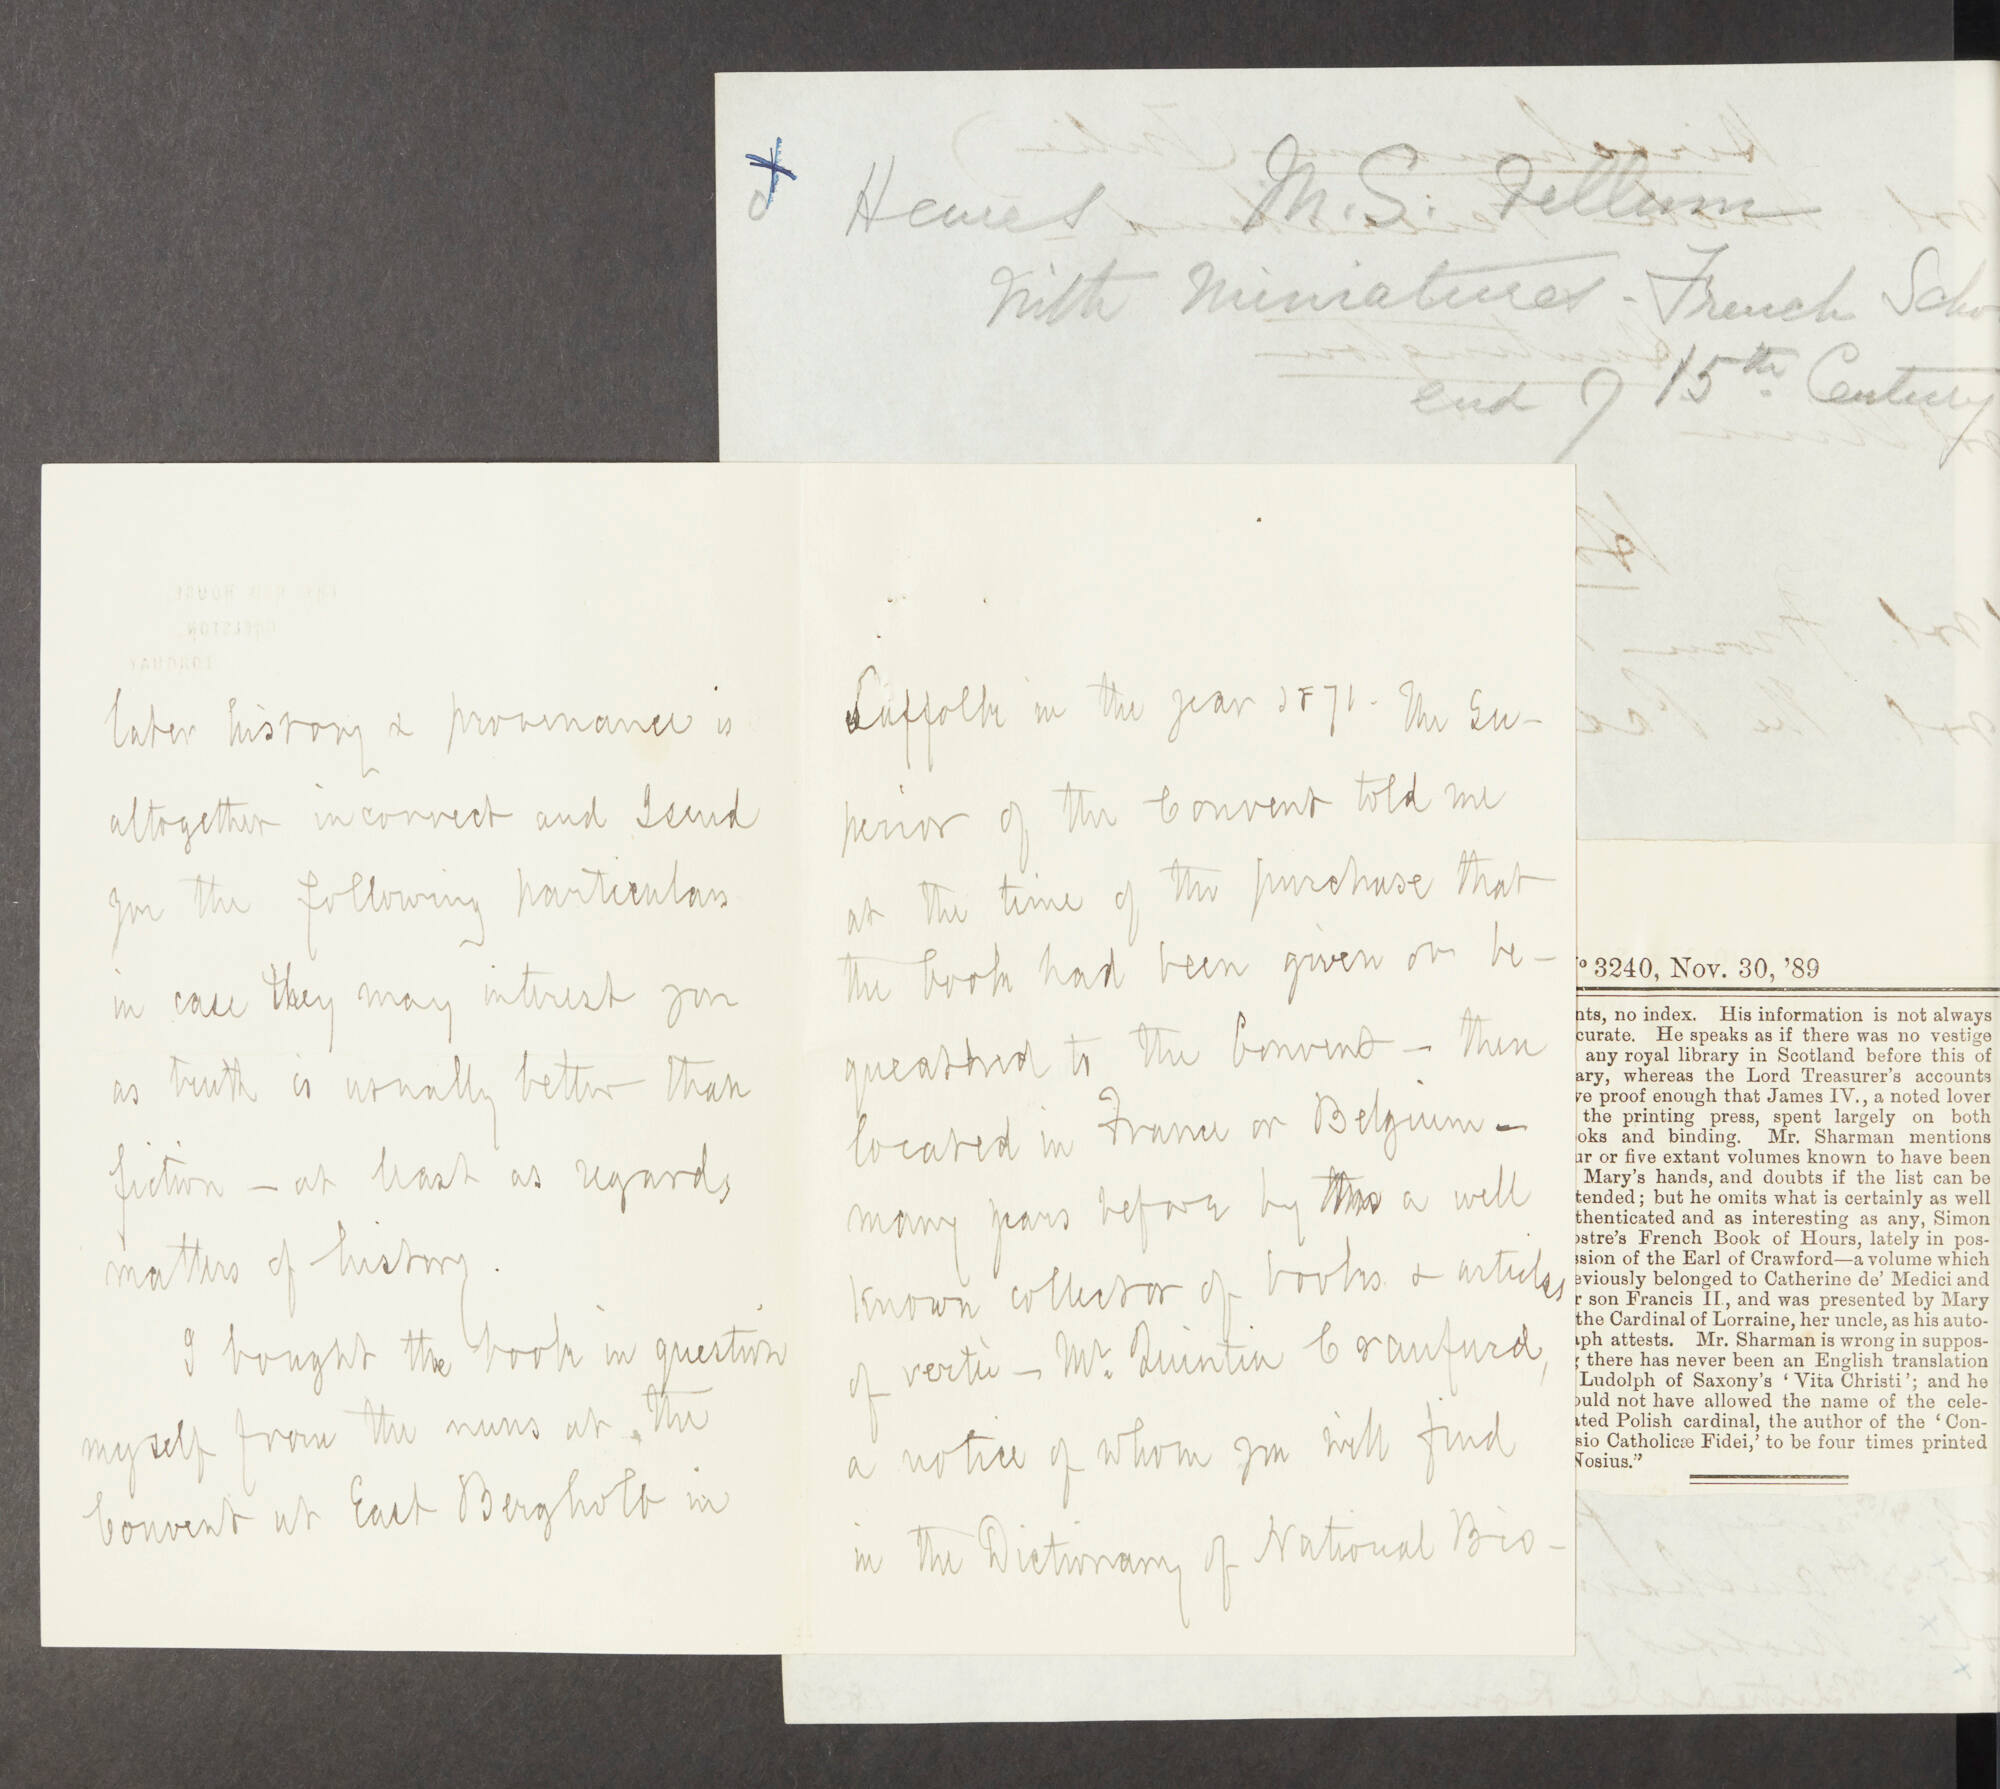 Heures M.S: Vellum
with Miniatures - French Scho
end of 15th Century
later history & provenance is
altogether incorrect and I send
you the following particulars
in case they may interest you
as truth is usually better than
fiction — at least as regards
matters of history.
I bought the book in question
myself from the nuns at the
Convent at East Bergholt in
Suffolk in the year 1871. The Su-
perior of the Convent told me
at the time of the purchase that
the book had been given or be-
queathed to the Convent — then
located in France or Belgium —
many years before by a well
known collector of books & articles
of vertu — Mr. Quintin Craufurd,
a notice of whom you will find
in the Dictionary of National Bio-
º 3240, Nov. 30, '89
nts, no index. His information is not always
curate. He speaks as if there was no vestige
any royal library in Scotland before this of
ary, whereas the Lord Treasurer's accounts
ve proof enough that James IV., a noted lover
the printing press, spent largely on both
oks and binding. Mr. Sharman mentions
ur or five extant volumes known to have been
Mary's hands, and doubts if the list can be
tended; but he omits what is certainly as well
thenticated and as interesting as any, Simon
ostre's French Book of Hours, lately in pos-
ssion of the Earl of Crawford—a volume which
eviously belonged to Catherine de' Medici and
r son Francis II., and was presented by Mary
the Cardinal of Lorraine, her uncle, as his auto-
aph attests. Mr. Sharman is wrong in suppos-
g there has never been an English translation
Ludolph of Saxony's 'Vita Christi'; and he
ould not have allowed the name of the cele-
ated Polish cardinal, the author of the 'Con-
sio Catholicæ Fidei,' to be four times printed
Nosius."